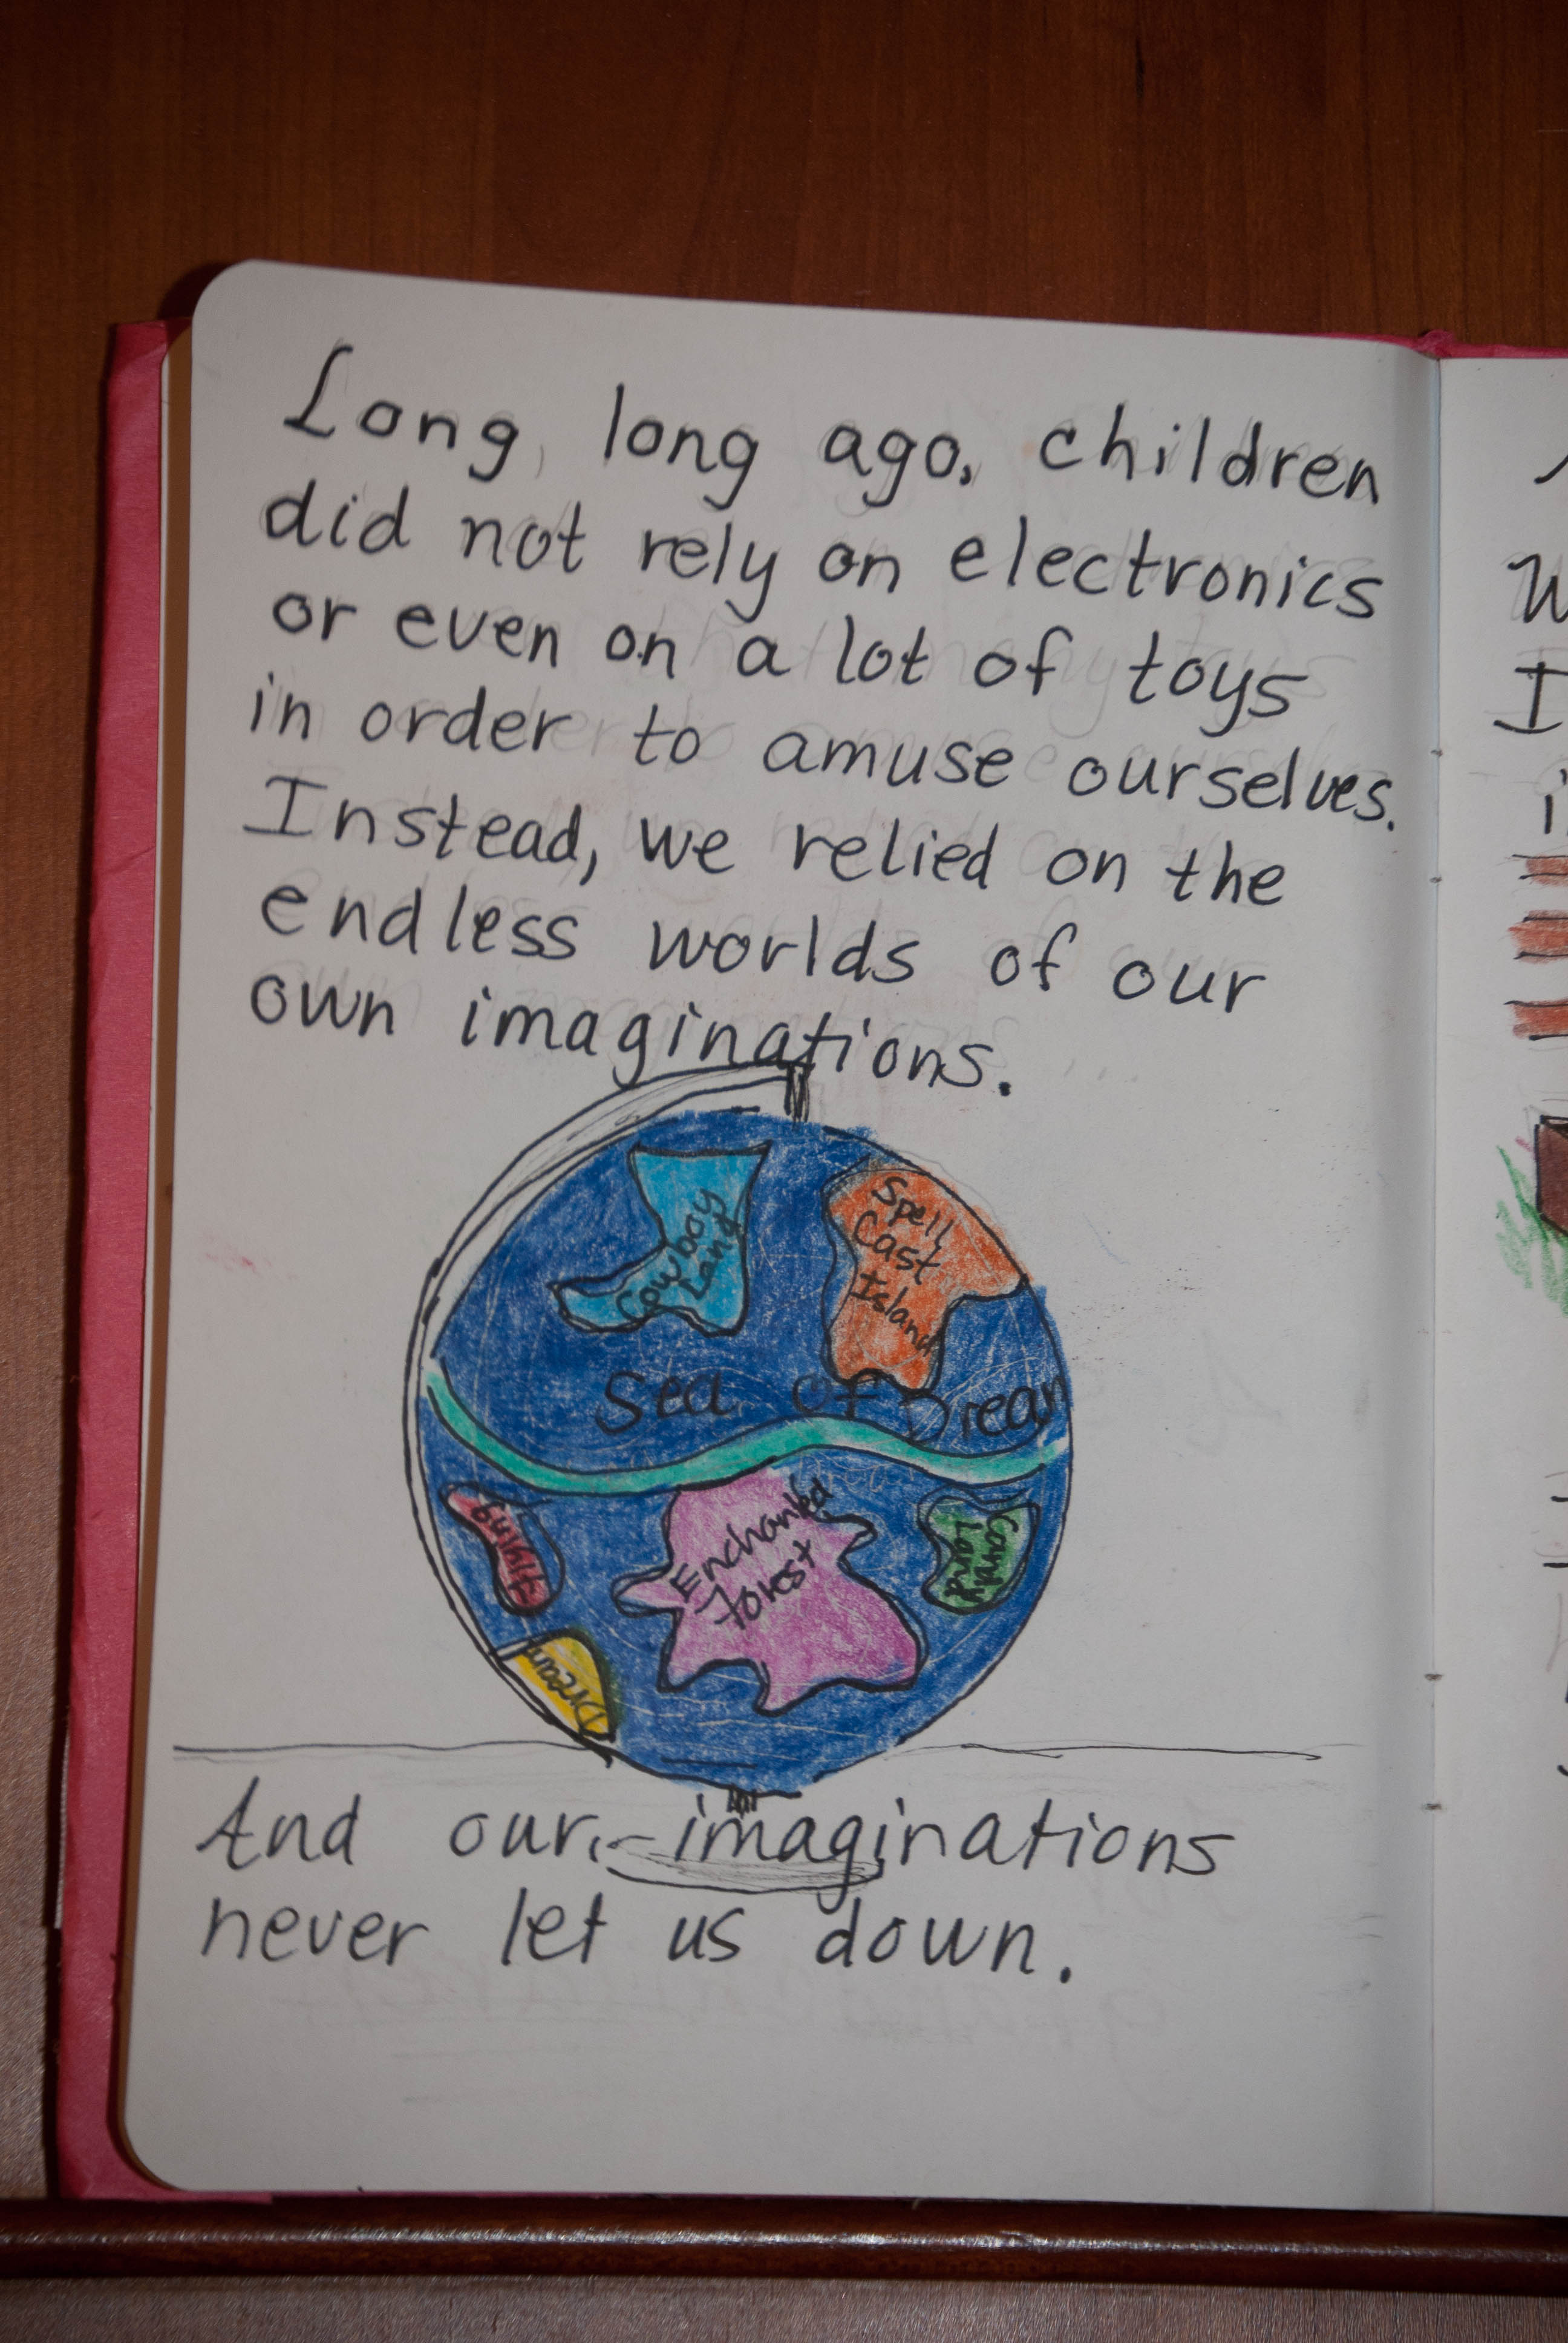 Long, long ago, children
did not rely on electronics
or even on a lot of toys
in order to amuse ourselves.
Instead, we relied on the
endless worlds of our
own imaginations.
Cowboy
Land
Spell
Cast
Island
Sea of Dream
Flying
Enchanted
Forest
Candy
Land
Dream
And our imaginations
never let us down.
W
I
i